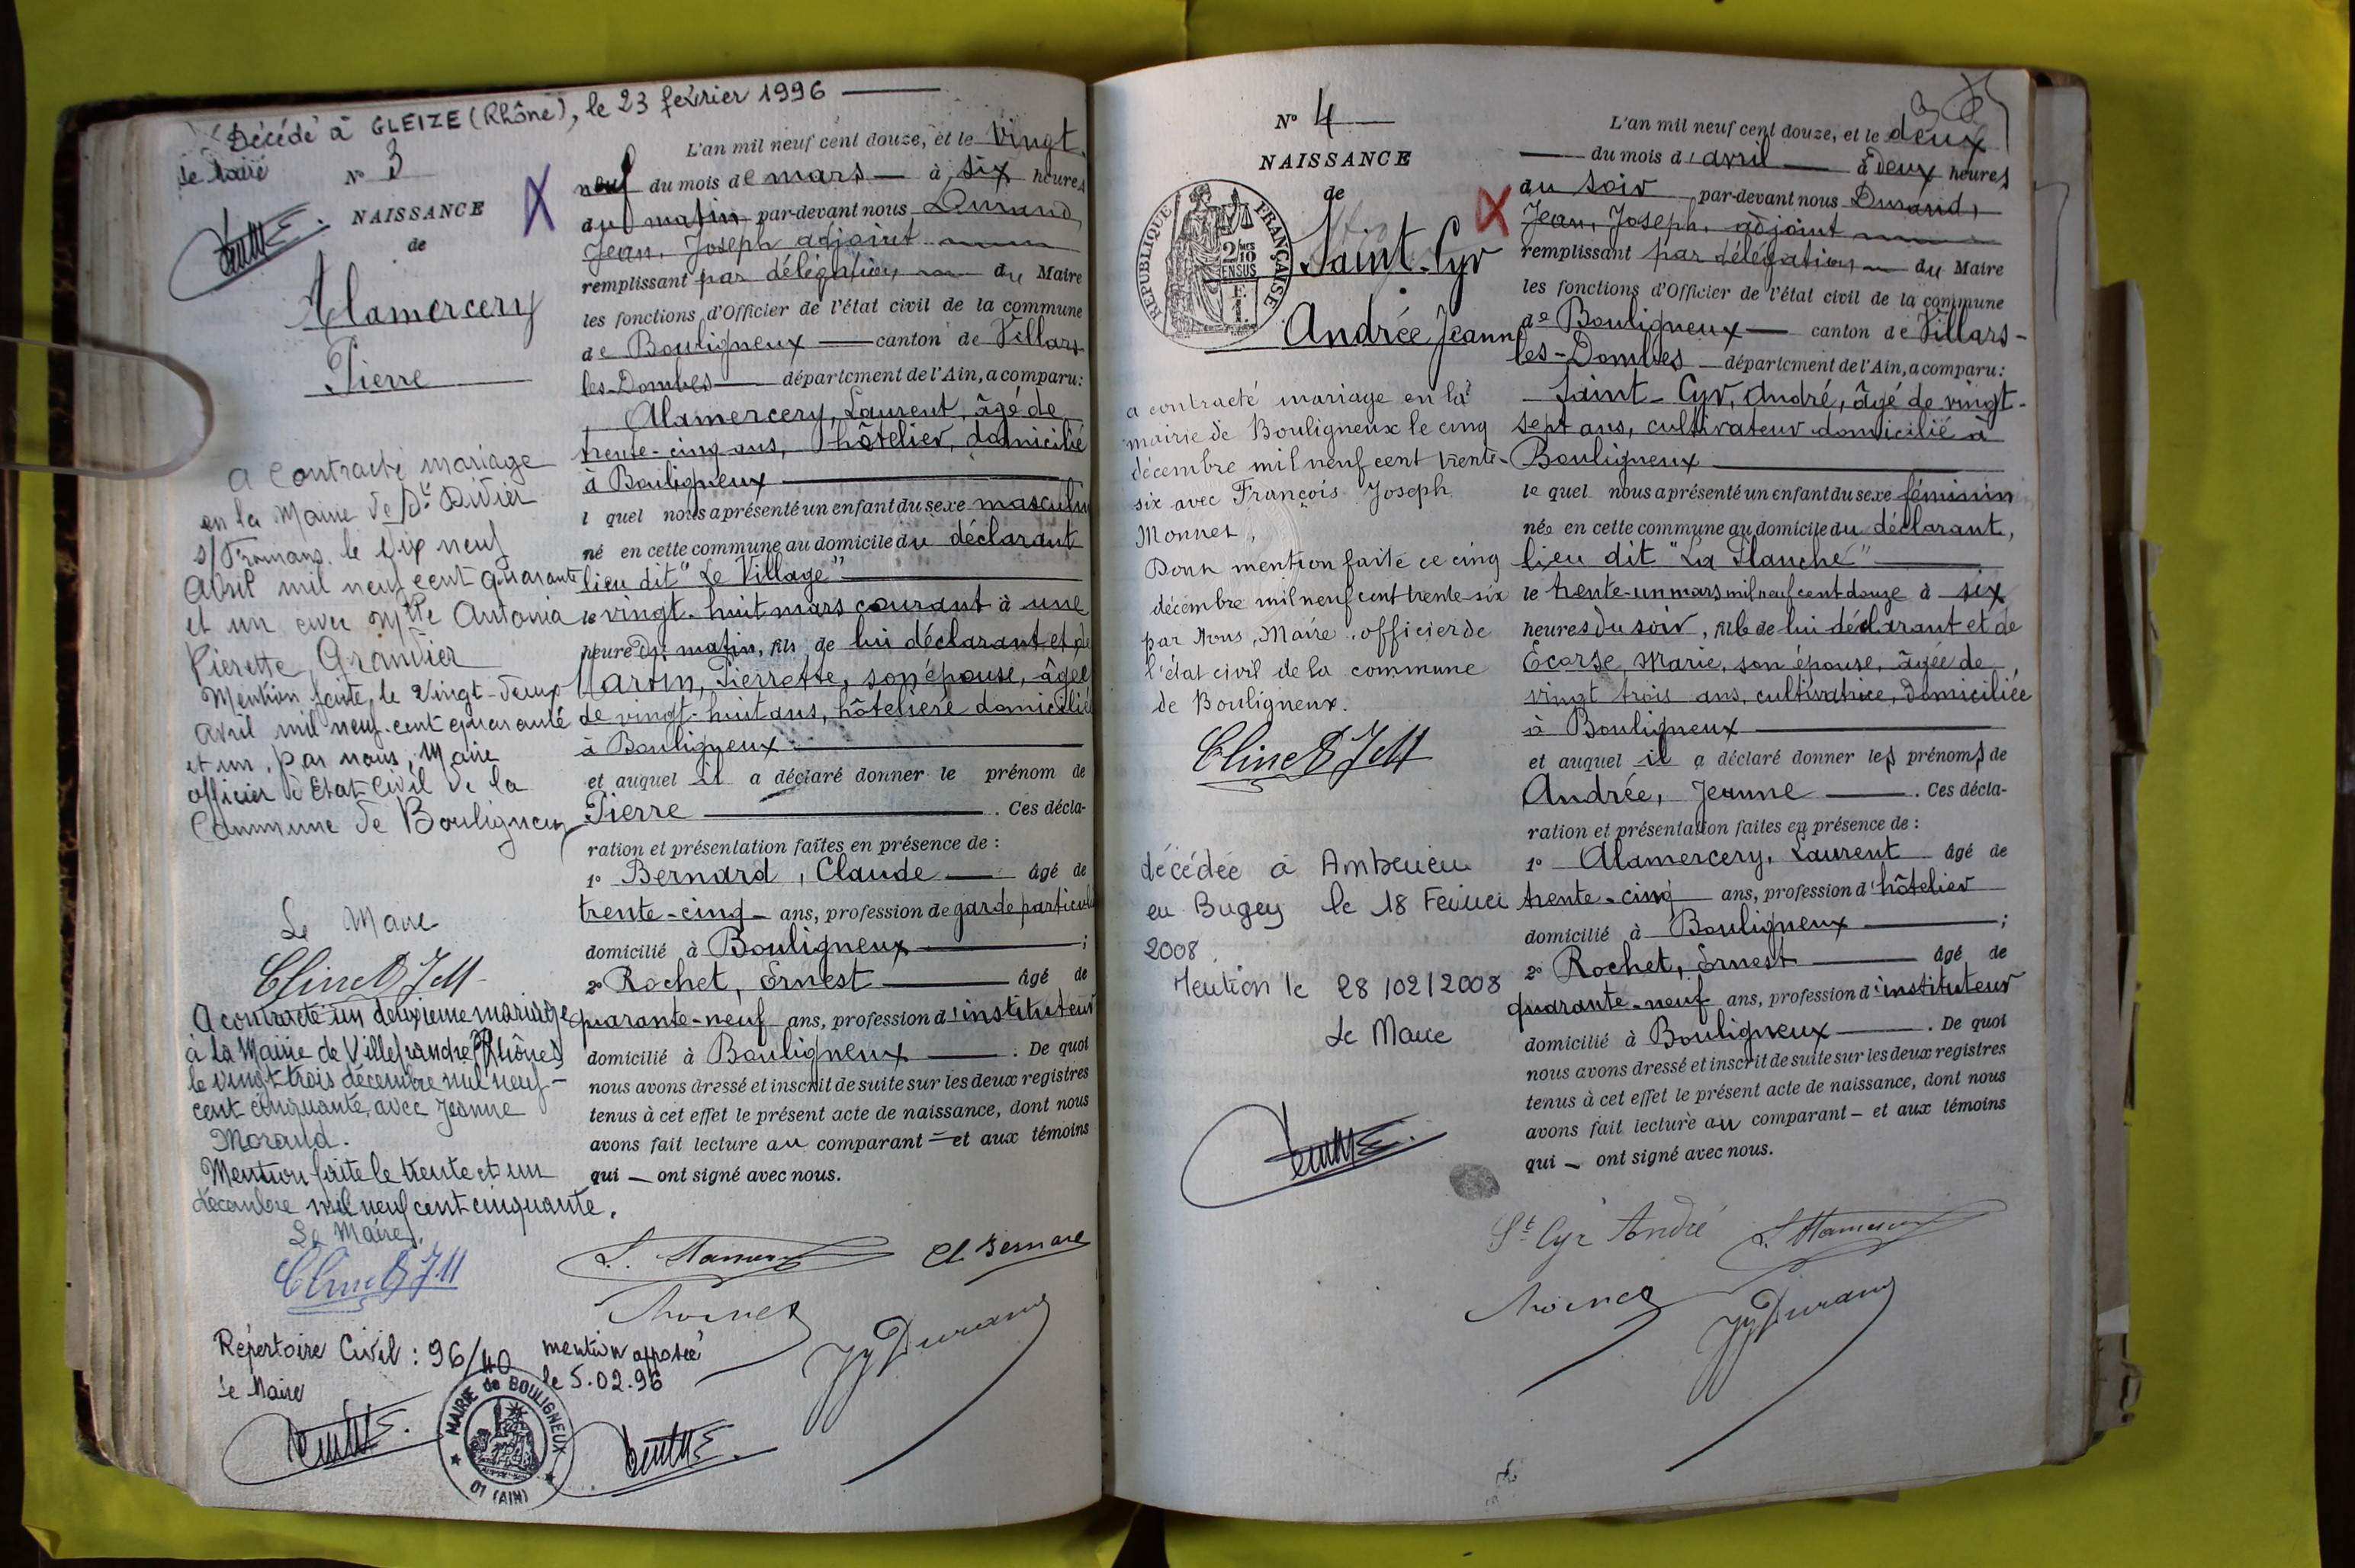 Décédé à GLEIZE (Rhône), le 23 février 1996
Le Maire
N° 3
NAISSANCE
de
Alamercery
Pierre
A Contracté mariage
en la Mairie de St Didier
s/ Formans le dix neuf
Avril mil neuf cent quarante
et un avec Mlle Antonia
Pierette Grandier
Mention faite, le vingt-deux
Avril mil neuf cent quarante
et un, par nous, Maire
officier d'Etat Civil de la
Commune de Bouligneux
Le Maire
A contracté un deuxième mariage
à la Mairie de Villefranche (Rhône)
le vingt trois décembre mil neuf-
cent cinquante, avec Jeanne
Morauld.
Mention faite le trente et un
décembre mil neuf cent cinquante.
Le Maire,
Répertoire Civil : 96/40
Le Maire
mention apposée
le 5.02.96
MAIRIE de BOULIGNEUX
01 (AIN)
L'an mil neuf cent douze, et le vingt
neuf du mois de mars à six heures
du matin par-devant nous Durand,
Jean, Joseph adjoint
remplissant par délégation du Maire
les fonctions d'Officier de l'état civil de la commune
de Bouligneux canton de Villars-
les-Dombes département de l'Ain, a comparu:
Alamercery, Laurent, âgé de
trente-cinq ans, hôtelier, domicilié
à Bouligneux
l quel nous a présenté un enfant du sexe masculin
né en cette commune au domicile du déclarant
lieu dit "Le Village"
le vingt-huit mars courant à une
heure du matin, fils de lui déclarant et de
Martin, Pierrette, son épouse, âgée
de vingt-huit ans, hôtelière domiciliée
à Bouligneux
et auquel il a déclaré donner le prénom de
Pierre . Ces décla-
ration et présentation faites en présence de :
1° Bernard, Claude âgé de
trente-cinq ans, profession de garde particulier
domicilié à Bouligneux ;
2° Rochet, Ernest âgé de
quarante-neuf ans, profession d'instituteur
domicilié à Bouligneux . De quoi
nous avons dressé et inscrit de suite sur les deux registres
tenus à cet effet le présent acte de naissance, dont nous
avons fait lecture au comparant – et aux témoins
qui – ont signé avec nous.
Cl. Bernard
JJ Durand
N° 4
NAISSANCE
de
Saint-Cyr
Andrée Jeanne
REPUBLIQUE FRANÇAISE
2/10
EN SUS
a contracté mariage en la
mairie de Bouligneux le cinq
décembre mil neuf cent trente-
six avec François Joseph
Monnet,
Dont mention faite ce cinq
décembre mil neuf cent trente-six
par Nous, Maire, officier de
l'état civil de la commune
de Bouligneux.
décédée à Ambérieu
en Bugey le 18 Février
2008
Mention le 28/02/2008
Le Maire
L'an mil neuf cent douze, et le deux
du mois d'avril à deux heures
du soir par-devant nous Durand,
Jean, Joseph, adjoint
remplissant par délégation du Maire
les fonctions d'Officier de l'état civil de la commune
de Bouligneux canton de Villars-
les-Dombes département de l'Ain, a comparu:
Saint-Cyr, André, âgé de vingt-
sept ans, cultivateur domicilié à
Bouligneux
le quel nous a présenté un enfant du sexe féminin
née en cette commune au domicile du déclarant,
lieu dit "La Planche"
le trente-un mars mil neuf cent douze à six
heures du soir, fille de lui déclarant et de
Ecorse, Marie, son épouse, âgée de
vingt trois ans, cultivatrice, domiciliée
à Bouligneux
et auquel il a déclaré donner les prénoms de
Andrée, Jeanne . Ces décla-
ration et présentation faites en présence de :
1° Alamercery, Laurent âgé de
trente-cinq ans, profession d'hôtelier
domicilié à Bouligneux ;
2° Rochet, Ernest âgé de
quarante-neuf ans, profession d'instituteur
domicilié à Bouligneux . De quoi
nous avons dressé et inscrit de suite sur les deux registres
tenus à cet effet le présent acte de naissance, dont nous
avons fait lecture au comparant – et aux témoins
qui – ont signé avec nous.
St Cyr André
JJ Durand